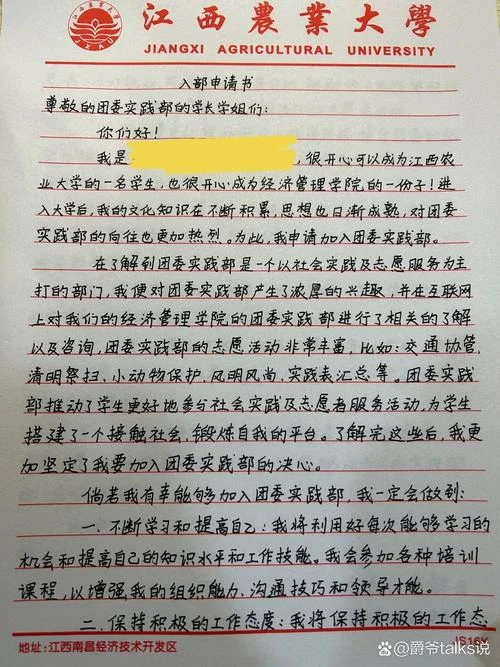 江西農業大學
JXAU
JIANGXI AGRICULTURAL UNIVERSITY
入部申请书
尊敬的团委实践部的学长学姐们：
你们好！
我是 ，很开心可以成为江西农
业大学的一名学生，也很开心成为经济管理学院的一份子！进
入大学后，我的文化知识在不断积累，思想也日渐成熟，对团委
实践部的向往也更加热烈。为此，我申请加入团委实践部。
在了解到团委实践部是一个以社会实践及志愿服务为主
打的部门，我便对团委实践部产生了浓厚的兴趣，并在互联网
上对我们的经济管理学院的团委实践部进行了相关的了解
以及咨询，团委实践部的志愿活动非常丰富，比如：交通协管、
清明祭扫、小动物保护、风明风尚、实践表汇总等。团委实践
部推动了学生更好地参与社会实践及志愿者服务活动，为学生
搭建了一个接触社会、锻炼自我的平台。了解完这些后，我更
加坚定了我要加入团委实践部的决心。
倘若我有幸能够加入团委实践部，我一定会做到：
一．不断学习和提高自己：我将利用好每次能够学习的
机会和提高自己的知识水平和工作技能。我会参加各种培训
课程，以增强我的组织能力、沟通技巧和领导才能。
二．保持积极的工作态度：我将保持积极的工作态
地址：江西南昌经济技术开发区
JS16Y
@爵爷talks说